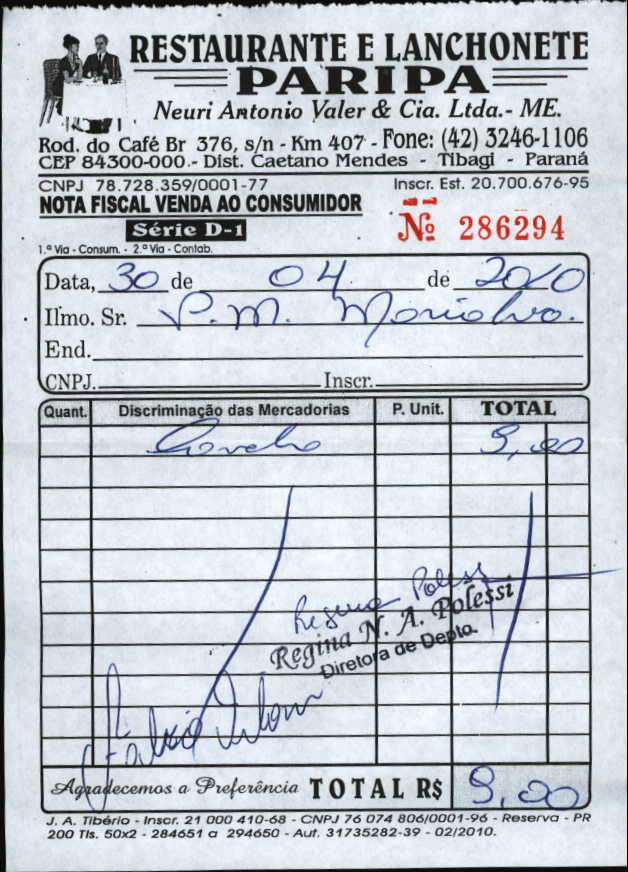 RESTAURANTE E LANCHONETE
PARIPA
Neuri Antonio Valer & Cia. Ltda.- ME.
Rod. do Café Br 376, s/n - Km 407 - Fone: (42) 3246-1106
CEP 84300-000 - Dist. Caetano Mendes - Tibagi - Paraná
CNPJ 78.728.359/0001-77 Inscr. Est. 20.700.676-95
NOTA FISCAL VENDA AO CONSUMIDOR
Série D-1 Nº 286294
1.ª Via - Consum. - 2.ª Via - Contab.
Data, 30 de 04 de 2010
Ilmo. Sr. P. M. Marialva.
End.
CNPJ. Inscr.
Quant. Discriminação das Mercadorias P. Unit. TOTAL
9,00
Regina Polessi
Regina N. A. Polessi
Diretora de Depto.
Agradecemos a Preferência TOTAL R$ 9,00
J. A. Tibério - Inscr. 21 000 410-68 - CNPJ 76 074 806/0001-96 - Reserva - PR
200 Tls. 50x2 - 284651 a 294650 - Aut. 31735282-39 - 02/2010.